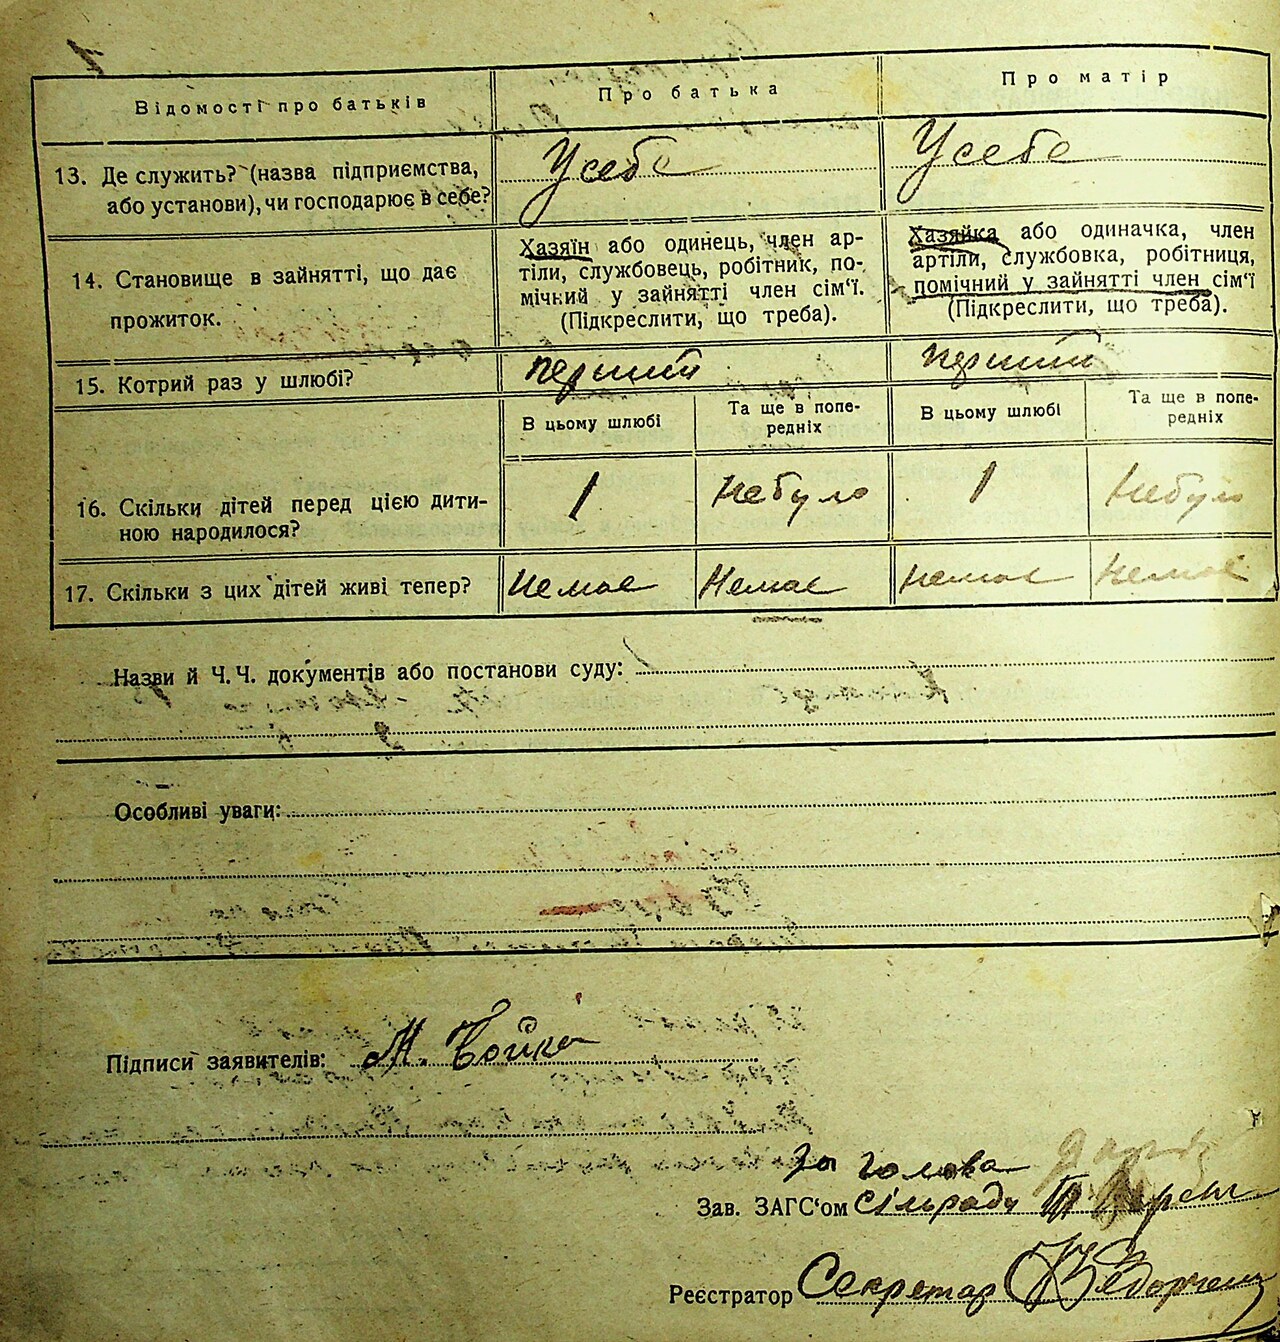 Відомості про батьків Про батька Про матір
13. Де служить? (назва підприємства, або установи), чи господарює в себе? Усебе Усебе
14. Становище в зайнятті, що дає прожиток.
Хазяїн або одинець, член ар-
тіли, службовець, робітник, по-
мічний у зайнятті член сім'ї.
(Підкреслити, що треба).
Хазяйка або одиначка, член
артіли, службовка, робітниця,
помічний у зайнятті член сім'ї
(Підкреслити, що треба).
15. Котрий раз у шлюбі? перший перший
В цьому шлюбі Та ще в попе-
редніх В цьому шлюбі Та ще в попе-
редніх
16. Скільки дітей перед цією дити-
ною народилося? 1 Небуло 1 Небуло
17. Скільки з цих дітей живі тепер? Немає Немає Немає Немає
Назви й Ч.Ч. документів або постанови суду:
Особливі уваги:
Підписи заявителів: М. Бойко
За Голова
Зав. ЗАГС'ом сільради
Реєстратор Секретар